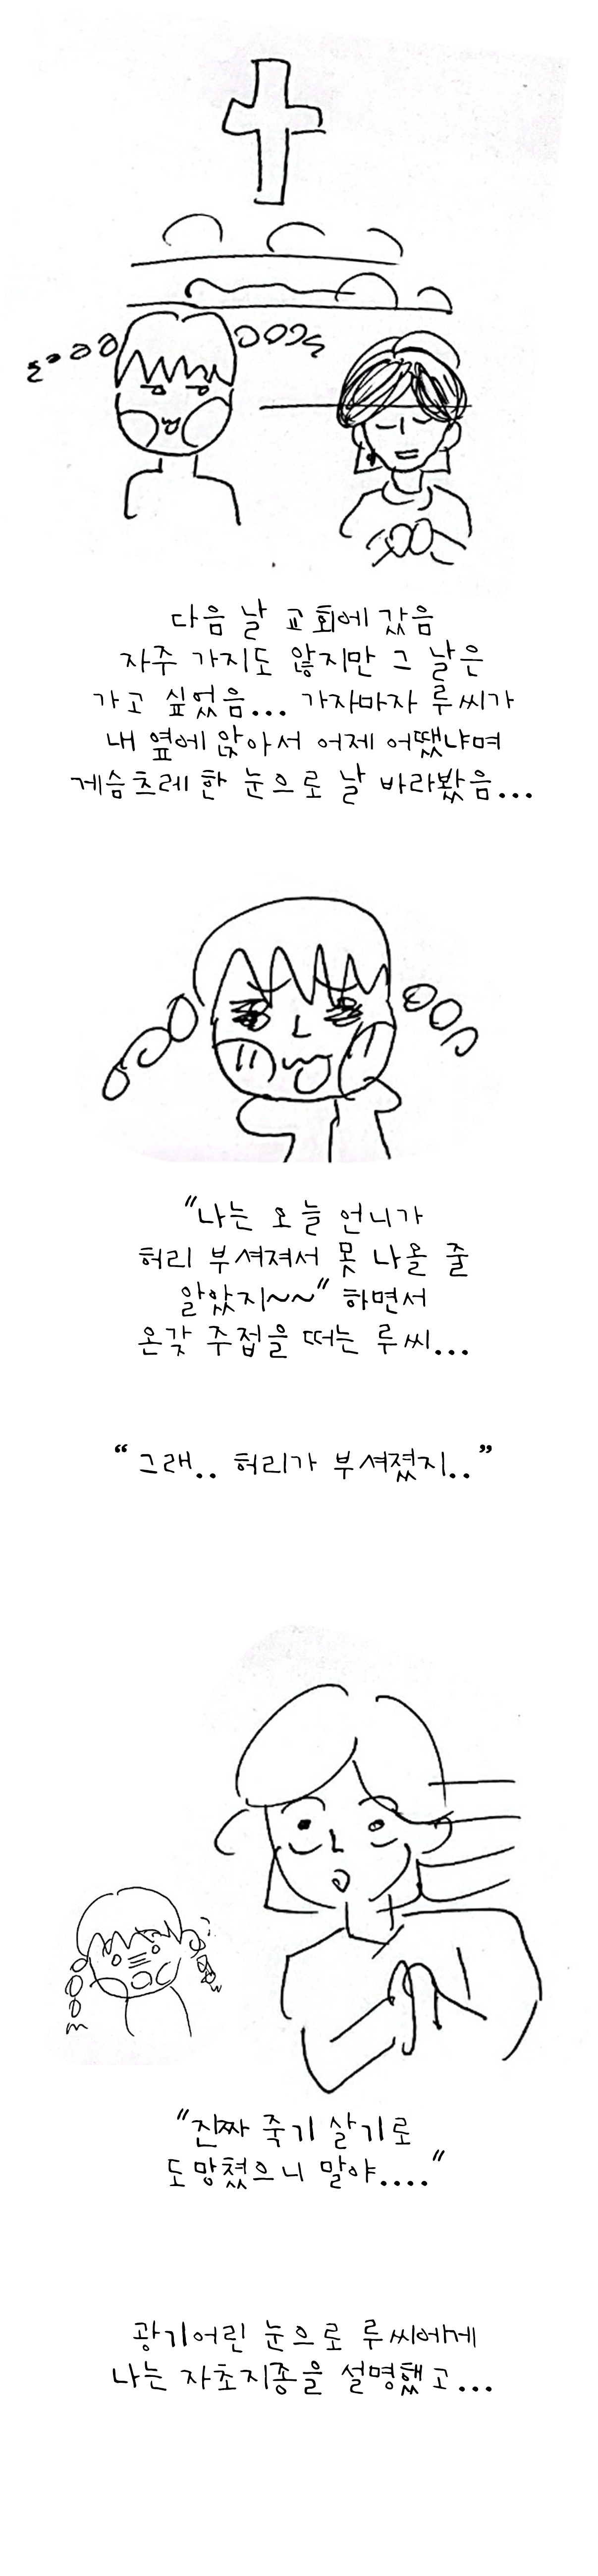 다음 날 교회에 갔음
자주 가지도 않지만 그 날은
가고 싶었음... 가자마자 루씨가
내 옆에 앉아서 어제 어땠냐며
게슴츠레 한 눈으로 날 바라봤음...
"나는 오늘 언니가
허리 부셔져서 못 나올 줄
알았지~~" 하면서
온갖 주접을 떠는 루씨...
“그래.. 허리가 부셔졌지..”
"진짜 죽기 살기로
도망쳤으니 말야...."
광기어린 눈으로 루씨에게
나는 자초지종을 설명했고...